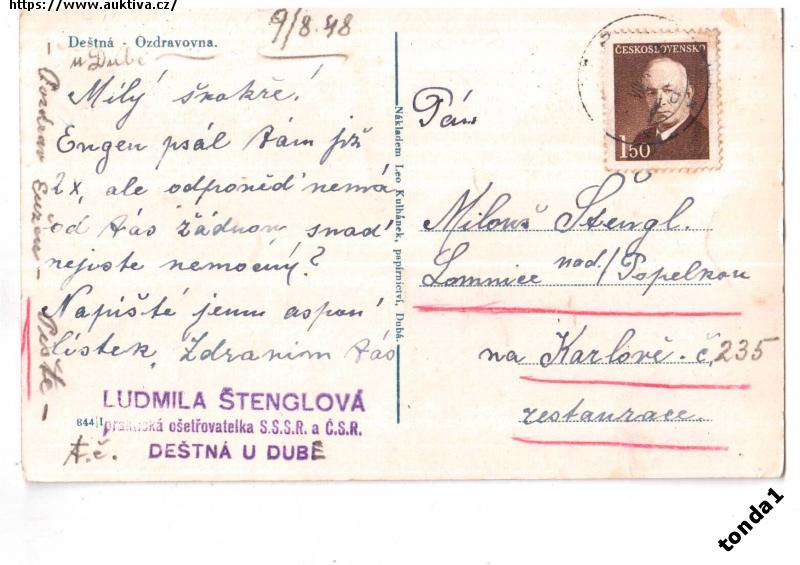 https://www.auktiva.cz/
9/8.48
Deštná - Ozdravovna.
u Dubé
Milý švakře!
Eugen psál Vám již
2x, ale odpověď nemá
od Vás žádnou snad
nejste nemocný?
Napiště jemu aspoň
lístek, Zdravim Vás
LUDMILA ŠTENGLOVÁ
praktická ošetřovatelka S.S.S.R. a Č.S.R.
DEŠTNÁ U DUBÉ
844/1
- Pozdrav Eužen - Pište -
Nákladem Leo Kulhánek, papírnictví, Dubá.
ČESKOSLOVENSKO
1 50
Pán
Milouš Štengl.
Lomnice nad/Popelkou
na Karlově č. 235
restaurace.
tonda1